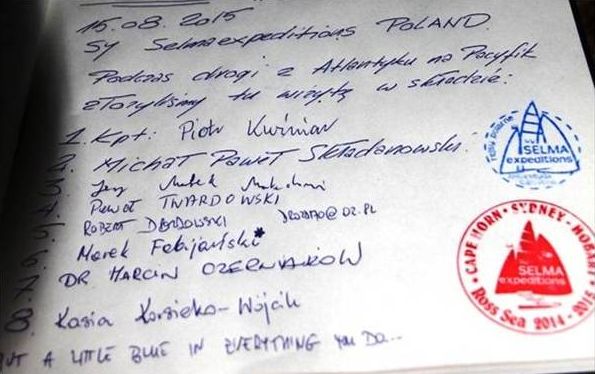 15.08.2015
Sy Selmaexpeditions POLAND.
Podczas drogi z Atlantyku na Pacyfik
złożyliśmy tu wizytę w składzie:
1. Kpt: Piotr Kuźniar
2. Michał Paweł Składanowski
3. Jerzy
4. Paweł TWARDOWSKI
5. ROBERT
6. Marek
7. DR MARCIN
8. Kasia Korsieko-Wójcik
PUT A LITTLE BLUE IN EVERYTHING YOU DO...
SELMA
expeditions
CAPE HORN • SYDNEY • HOBART
SELMA
expeditions
Ross Sea 2014-2015